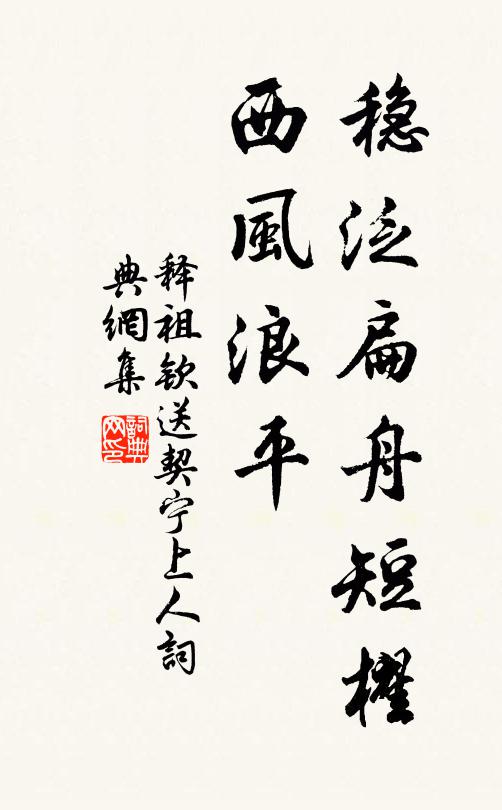 稳泛扁舟短櫂
西風浪平
释祖钦送契宁上人詞
典網集
詞典
网印